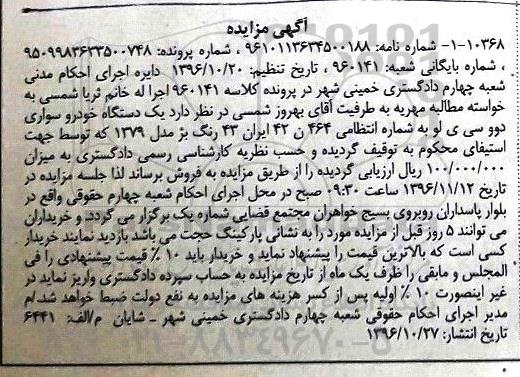 آگهی مزایده
۱-۱۰۳۶۸- شماره نامه: ۹۶۱۰۱۱۳۶۳۴۵۰۰۱۸۸ ، شماره پرونده: ۹۵۰۹۹۸۳۶۳۳۵۰۰۷۴۸
، شماره بایگانی شعبه: ۹۶۰۱۴۱ ، تاریخ تنظیم: ۱۳۹۶/۱۰/۲۰ دایره اجرای احکام مدنی
شعبه چهارم دادگستری خمینی شهر در پرونده کلاسه ۹۶۰۱۴۱ اجرا له خانم ثریا شمسی به
خواسته مطالبه مهریه به طرفیت آقای بهروز شمسی در نظر دارد یک دستگاه خودرو سواری
دوو سی ی لو به شماره انتظامی ۴۶۴ ن ۴۲ ایران ۴۳ رنگ بژ مدل ۱۳۷۹ که توسط جهت
استیفای محکوم به توقیف گردیده و حسب نظریه کارشناسی رسمی دادگستری به میزان
۱۰۰/۰۰۰/۰۰۰ ریال ارزیابی گردیده را از طریق مزایده به فروش برساند لذا جلسه مزایده در
تاریخ ۱۳۹۶/۱۱/۱۲ ساعت ۰۹:۳۰ صبح در محل اجرای احکام شعبه چهارم حقوقی واقع در
بلوار پاسداران روبروی بسیج خواهران مجتمع قضایی شماره یک برگزار می گردد. و خریداران
می توانند ۵ روز قبل از مزایده مورد را به نشانی پارکینگ حجت می باشد بازدید نمایند خریدار
کسی است که بالاترین قیمت را پیشنهاد نماید و خریدار باید ۱۰ ٪ قیمت پیشنهادی را فی
المجلس و مابقی را ظرف یک ماه از تاریخ مزایده به حساب سپرده دادگستری واریز نماید در
غیر اینصورت ۱۰ ٪ اولیه پس از کسر هزینه های مزایده به نفع دولت ضبط خواهد شد./م
مدیر اجرای احکام حقوقی شعبه چهارم دادگستری خمینی شهر ـ شایان م/الف: ۶۴۴۱
تاریخ انتشار: ۱۳۹۶/۱۰/۲۷
۰۲۱-۸۸۳۴۹۶۷۰-۵